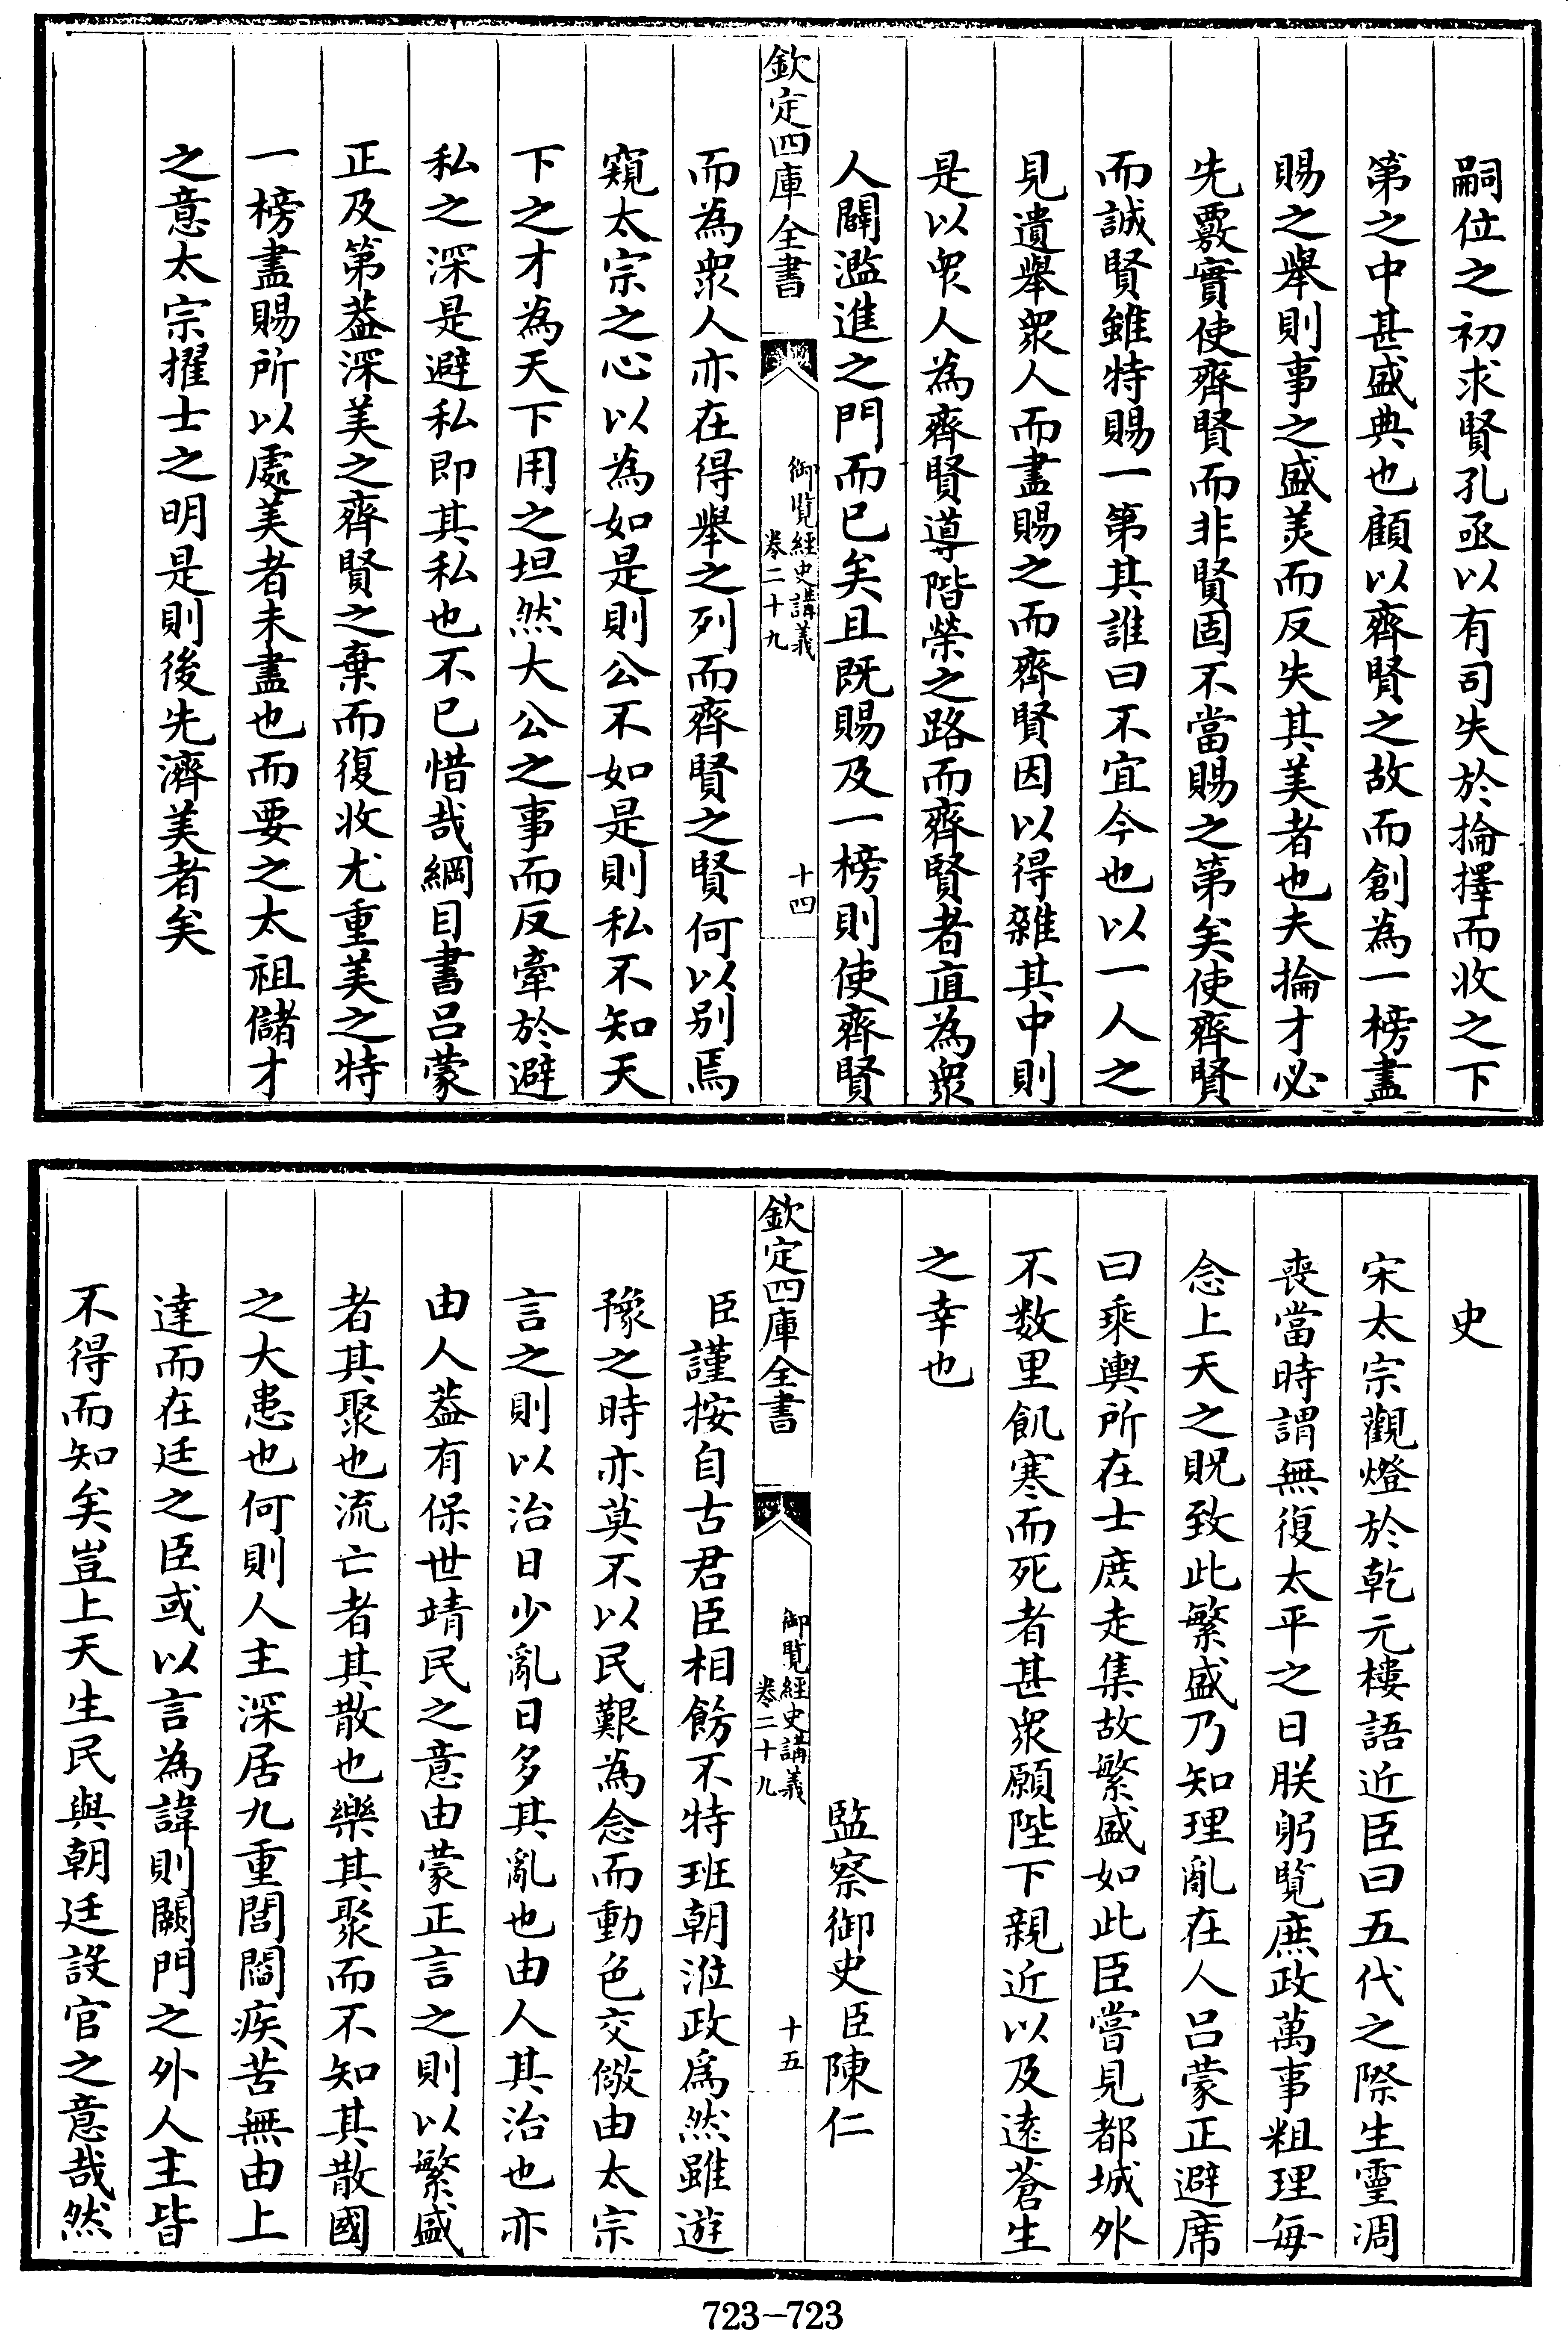 嗣位之初求賢孔亟以有司失於掄擇而收之下
第之中甚盛典也顧以齊賢之故而創為一榜盡
賜之舉則事之盛美而反失其美者也夫掄才必
先覈實使齊賢而非賢固不當賜之第矣使齊賢
而誠賢雖特賜一第其誰曰不宜今也以一人之
見遺舉衆人而盡賜之而齊賢因以得雜其中則
是以衆人為齊賢導階榮之路而齊賢者直為衆
人闢濫進之門而已矣且既賜及一榜則使齊賢
欽定四庫全書
御覽經史講義
卷二十九
十四
而為衆人亦在得舉之列而齊賢之賢何以別焉
窺太宗之心以為如是則公不如是則私不知天
下之才為天下用之坦然大公之事而反牽於避
私之深是避私即其私也不已惜哉綱目書呂蒙
正及第葢深美之齊賢之棄而復收尤重美之特
一榜盡賜所以處美者未盡也而要之太祖儲才
之意太宗擢士之明是則後先濟美者矣
史
宋太宗觀燈於乾元樓語近臣曰五代之際生靈凋
喪當時謂無復太平之日朕躬覽庶政萬事粗理每
念上天之貺致此繁盛乃知理亂在人呂蒙正避席
曰乘輿所在士庶走集故繁盛如此臣嘗見都城外
不數里飢寒而死者甚衆願陛下親近以及遠蒼生
之幸也
監察御史臣陳仁
欽定四庫全書
御覽經史講義
卷二十九
十五
臣謹按自古君臣相飭不特班朝涖政爲然雖遊
豫之時亦莫不以民艱為念而動色交儆由太宗
言之則以治日少亂日多其亂也由人其治也亦
由人葢有保世靖民之意由蒙正言之則以繁盛
者其聚也流亡者其散也樂其聚而不知其散國
之大患也何則人主深居九重閭閻疾苦無由上
達而在廷之臣或以言為諱則闕門之外人主皆
不得而知矣豈上天生民與朝廷設官之意哉然
723-723